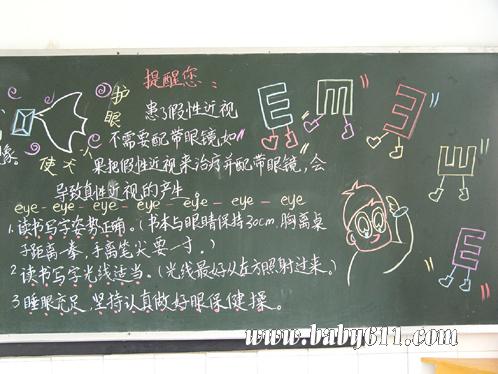 提醒您：
护眼
使大
像
患了假性近视
不需要配带眼镜,如
果把假性近视来治疗并配带眼镜,会
导致真性近视的产生
eye-eye-eye-eye-eye-eye-eye
1.读书写字姿势正确。(书本与眼睛保持30cm,胸离桌
子距离一拳,手离笔尖要一寸。)
2.读书写字光线适当。(光线最好从左方照射过来。)
3.睡眠充足,坚持认真做好眼保健操。
E
E
E
E
E
www.baby611.com